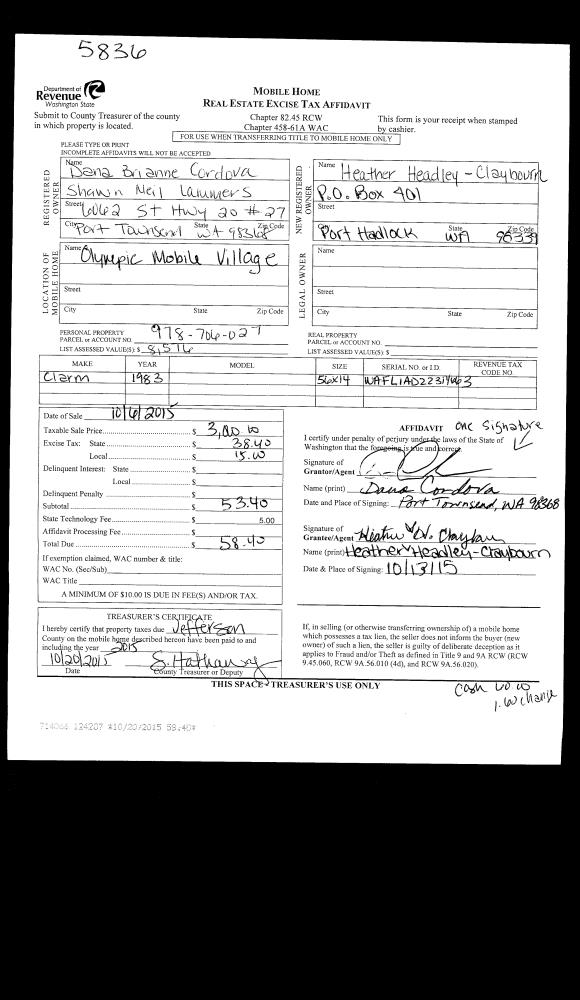 5836
Department of
Revenue
Washington State
Submit to County Treasurer of the county
in which property is located.
MOBILE HOME
REAL ESTATE EXCISE TAX AFFIDAVIT
Chapter 82.45 RCW
Chapter 458-61A WAC
This form is your receipt when stamped
by cashier.
FOR USE WHEN TRANSFERRING TITLE TO MOBILE HOME ONLY
PLEASE TYPE OR PRINT
INCOMPLETE AFFIDAVITS WILL NOT BE ACCEPTED
REGISTERED OWNER
Name Dana Brianne Cordova
Shawn Neil Lammers
Street 6062 St Hwy 20 # 27
City Port Townsend State WA Zip Code 98368
NEW REGISTERED OWNER
Name Heather Headley - Claybourn
P.O. Box 401
Street
Port Hadlock State WA Zip Code 98339
LOCATION OF MOBILE HOME
Name Olympic Mobile Village
Street
City State Zip Code
LEGAL OWNER
Name
Street
City State Zip Code
PERSONAL PROPERTY
PARCEL or ACCOUNT NO. 978-706-027
LIST ASSESSED VALUE(S): $ 8,516
REAL PROPERTY
PARCEL or ACCOUNT NO.
LIST ASSESSED VALUE(S): $
MAKE YEAR MODEL SIZE SERIAL NO. or I.D. REVENUE TAX CODE NO.
Clarm 1983 56x14
Date of Sale 10/6/2015
Taxable Sale Price $
Excise Tax: State $ 38.40
Local $ 15.00
Delinquent Interest: State $
Local $
Delinquent Penalty $
Subtotal $ 53.40
State Technology Fee $ 5.00
Affidavit Processing Fee $
Total Due $ 58.40
If exemption claimed, WAC number & title:
WAC No. (Sec/Sub)
WAC Title
A MINIMUM OF $10.00 IS DUE IN FEE(S) AND/OR TAX.
AFFIDAVIT one signature
I certify under penalty of perjury under the laws of the State of
Washington that the foregoing is true and correct.
Signature of
Grantor/Agent
Name (print) Dana Cordova
Date and Place of Signing: Port Townsend, WA 98368
Signature of
Grantee/Agent
Name (print) Heather Headley-Claybourn
Date & Place of Signing: 10/13/15
TREASURER'S CERTIFICATE
I hereby certify that property taxes due Jefferson
County on the mobile home described hereon have been paid to and
including the year 2015
10/20/2015 S. Hathaway
Date County Treasurer or Deputy
If, in selling (or otherwise transferring ownership of) a mobile home
which possesses a tax lien, the seller does not inform the buyer (new
owner) of such a lien, the seller is guilty of deliberate deception as it
applies to Fraud and/or Theft as defined in Title 9 and 9A RCW (RCW
9.45.060, RCW 9A.56.010 (4d), and RCW 9A.56.020).
THIS SPACE - TREASURER'S USE ONLY
Cash
1.60 change